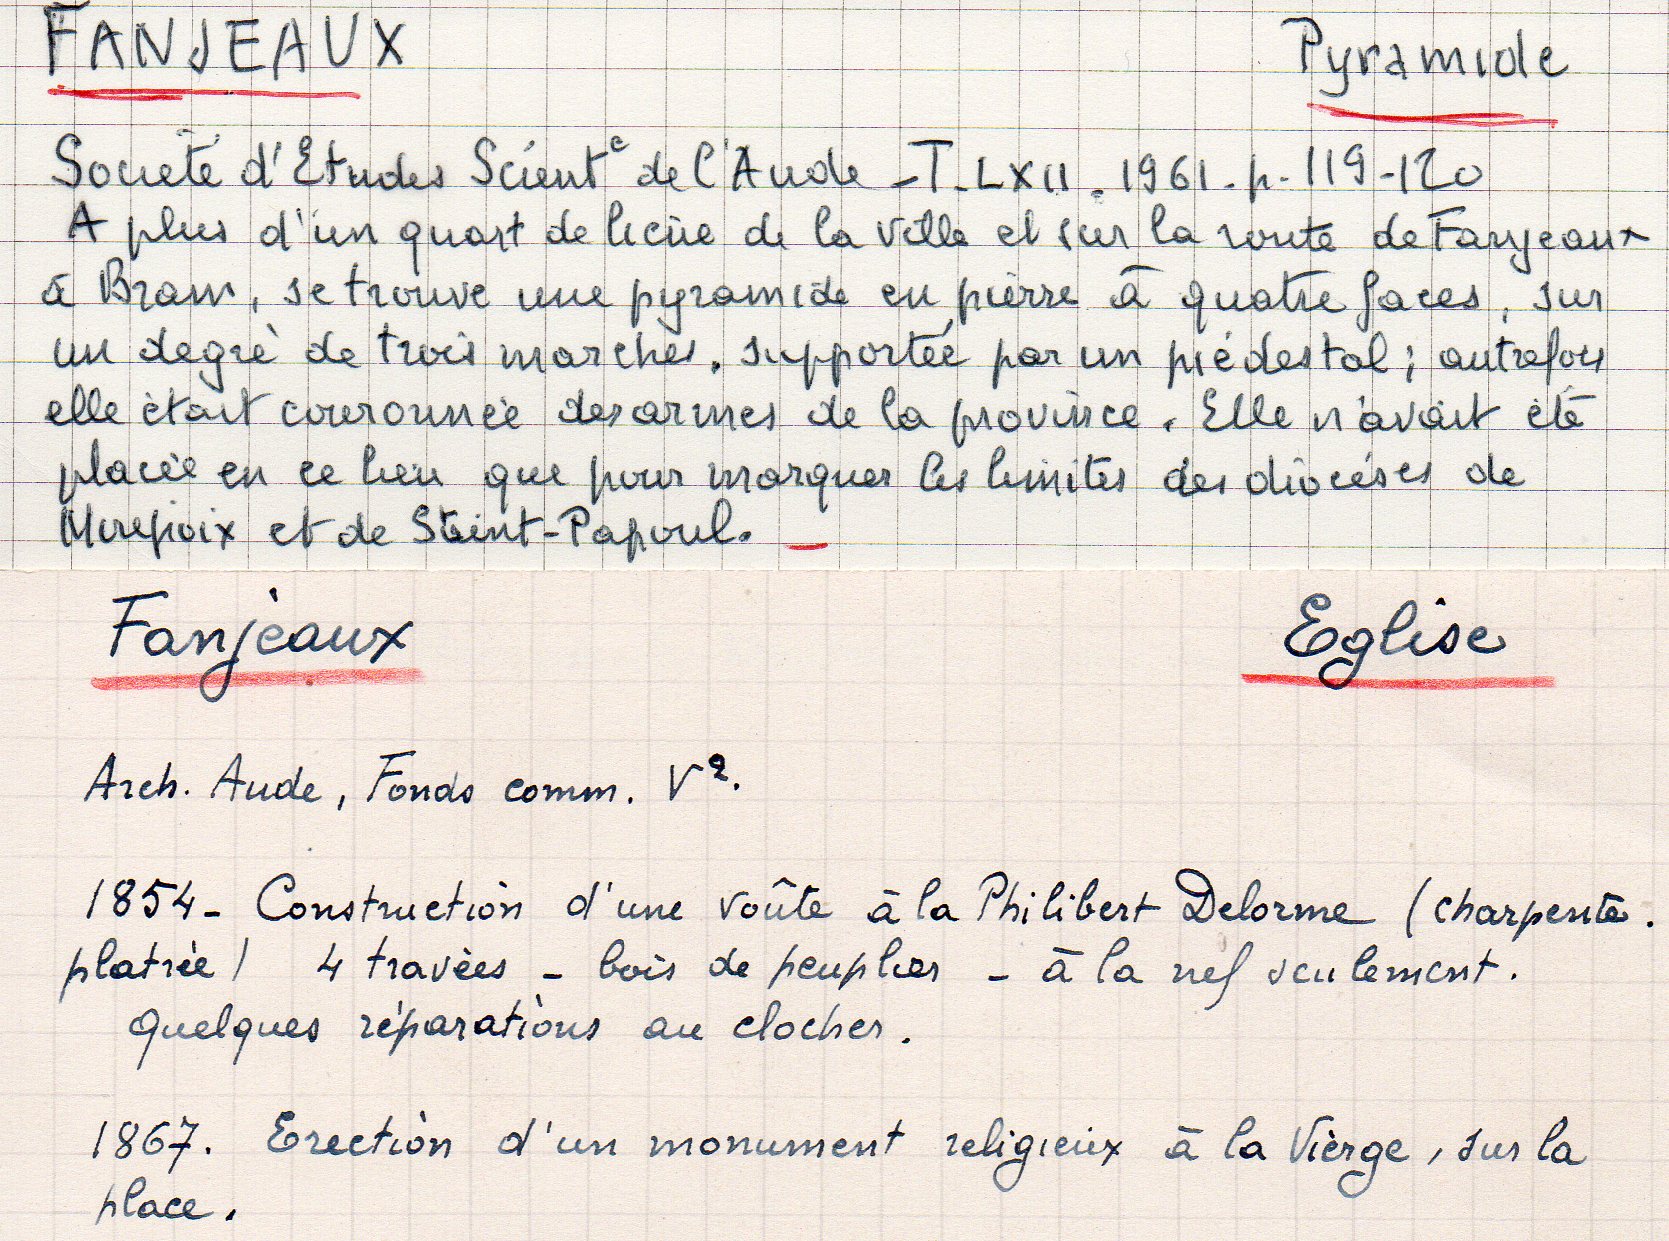 FANJEAUX Pyramide
Société d'Etudes Scient^e de l'Aude - T. LXII. 1961. p. 119-120
A plus d'un quart de lieüe de la ville et sur la route de Fanjeaux
à Bram, se trouve une pyramide en pierre à quatre faces, sur
un degré de trois marches, supportée par un piédestal; autrefois
elle était couronnée des armes de la province. Elle n'avait été
placée en ce lieu que pour marquer les limites des diocèses de
Mirepoix et de Saint-Papoul.
Fanjeaux Eglise
Arch. Aude, Fonds comm. V².
1854 - Construction d'une voûte à la Philibert Delorme (charpente.
platrée) 4 travées - bois de peuplier - à la nef seulement.
quelques réparations au clocher.
1867. Erection d'un monument religieux à la Vierge, sur la
place.